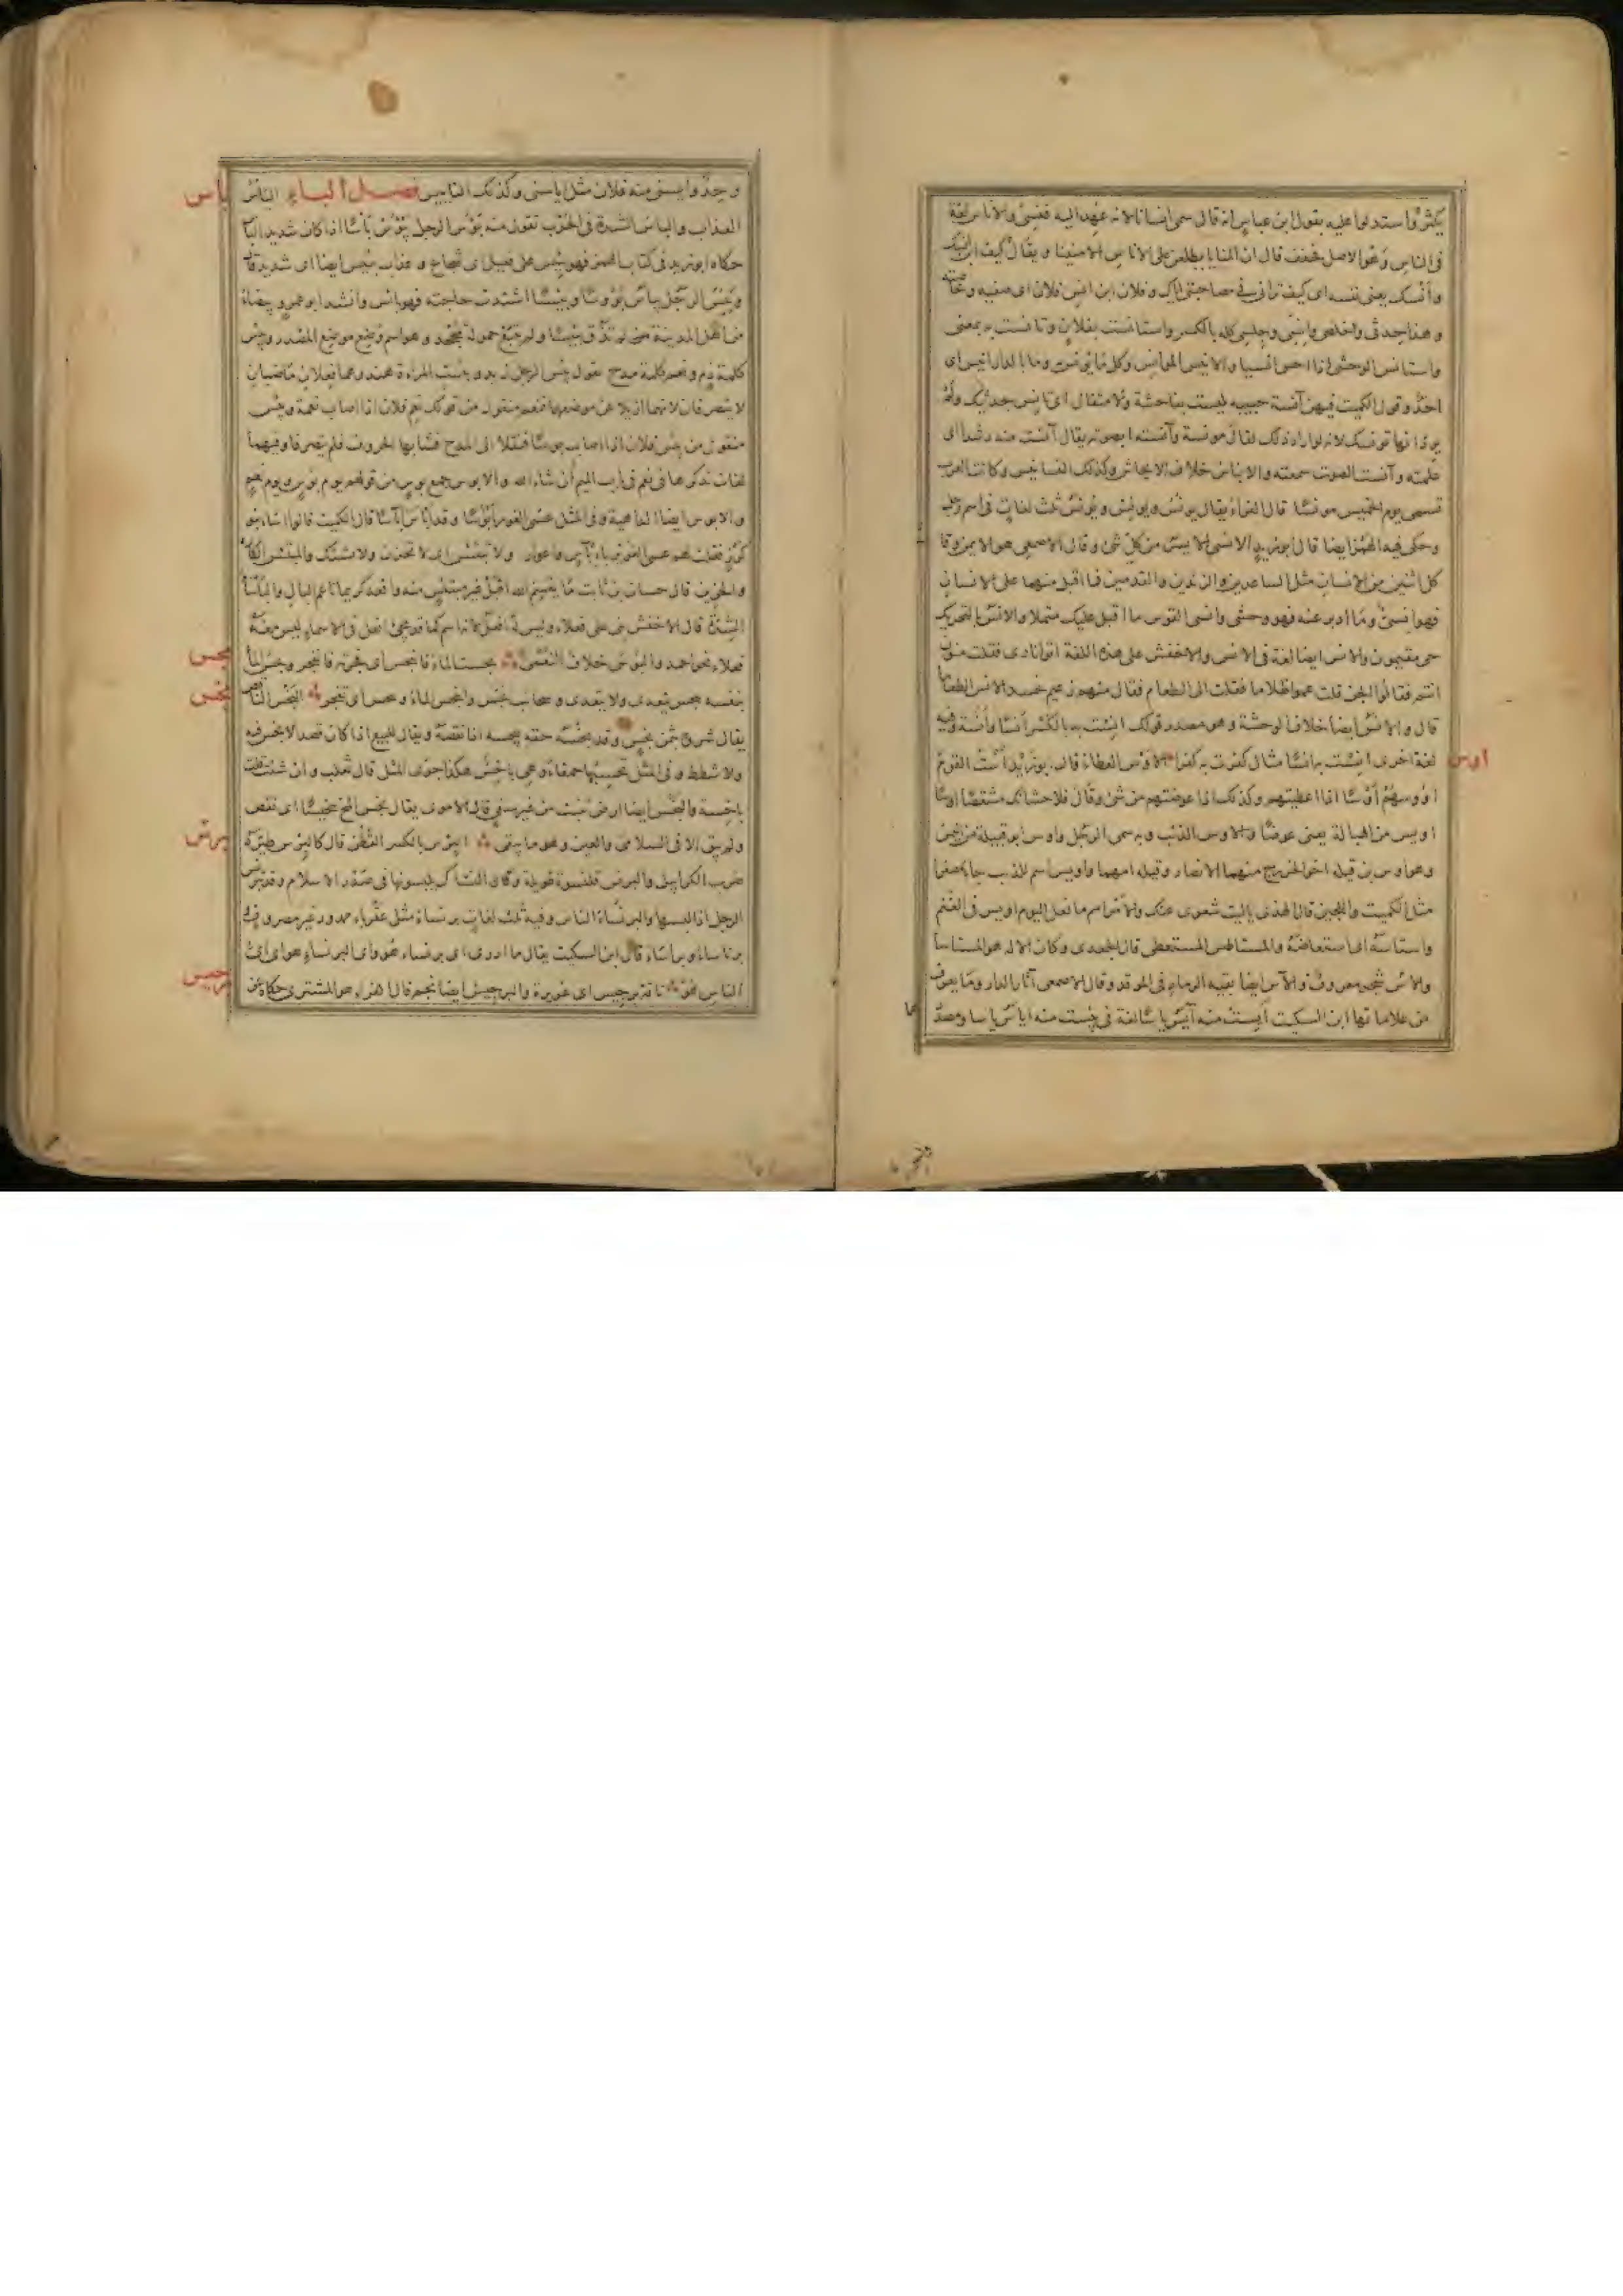 يكثر واستدلوا عليه بقول ابن عباس انه قال سمى انسانا لانه عهد اليه فنسى والاناس لغة
فى الناس وهو الاصل فخفف قال ان المنايا يطلعن على الاناس الامنينا ويقال كيف ابن انسك
وأنسك يعنى نفسه اى كيف ترانى فى مصاحبتى اياك وفلان ابن انس فلان اى صفيه وخاصته
وهذا حدثى وانسى وجلسى كله بالكسر واستانست بفلان وتانست به بمعنى
واستانس الوحشى اذا احس انسيا والانيس الموانس وكل ما يونس به وما بالدار انيس اى
احد وقول الكميت فيهن آنسة حبيبه ليست بفاحشة ولا متفال اى تانس حديثك ولم
يرد انها تونسك لانه لو اراد ذلك لقال مونسة وآنسته ابصرته يقال آنست منه رشدا اى
علمته وآنست الصوت سمعته والايناس خلاف الايحاش وكذلك التانيس وكانت العرب
تسمى يوم الخميس مونسا قال الفراء يقال يونس ويونس ويونس ثلث لغات فى اسم رجل
وحكى فيه الهمز ايضا قال ابو زيد الانسى الايسر من كل شئ وقال الاصمعى هو الايمن وقال
كل اثنين من الانسان مثل الساعدين والزندين والقدمين فما اقبل منهما على الانسان
فهو انسى وما ادبر عنه فهو وحشى وانسى القوس ما اقبل عليك منها والانس بالتحريك
حى مقيمون والانس ايضا لغة فى الانس والاخفش على هذه اللغة اتوا نارى فقلت منون
انتم فقالوا الجن قلت عموا ظلاما فقلت الى الطعام فقال منهم زعيم نحسد الانس الطعاما
قال والانس ايضا خلاف الوحشة وهو مصدر قولك انست به بالكسر أنسا وأنسة وفيه
اوس
لغة اخرى انست به انسا مثال كفرت به كفرا الاوس العطاء قال ابو زيد أست القوم
اؤوسهم أوسا اذا اعطيتهم وكذلك اذا عوضتهم من شئ وقال فلاحشانك مشقصا اوسا
اويس من الهبالة يعنى عوضا والاوس الذئب وبه سمى الرجل واوس ابو قبيلة من اليمن
وهو اوس بن قيله اخو الخزرج منهما الانصار وقيله امهما واويس اسم للذئب جاء مصغرا
مثل الكميت واللجين قال الهذلى ياليت شعرى عنك والامر امم ما فعل اليوم اويس فى الغنم
واستاسه اى استعاضه والمستاس المستعطى قال الجعدى وكان الاله هو المستاسا
والآس شجر معروف والآس ايضا بقية الرماد فى الموقد وقال الاصمعى آثار الدار وما يعرف
من علاماتها ابن السكيت أيست منه آيس ياسا لغة فى يئست منه اياس ياسا ومصدر
وجد وايسنى منه فلان مثل ياسنى وكذلك التاييس فصل الباء الباس
باس
العذاب والباس الشدة فى الحرب تقول منه بؤس الرجل يبؤس بأسا اذا كان شديد الباس
حكاه ابو زيد فى كتاب الهمز فهو بئيس على فعيل اى شجاع وعذاب بئيس ايضا اى شديد قال
وبئس الرجل يباس بؤوسا وبئيسا اشتدت حاجته فهو بائس وانشد ابو عمرو بيضاء
من اهل المدينة لم تذق بئيسا ولم تتبع حمولة مجحد وهو اسم وضع موضع المصدر وبئس
كلمة ذم ونعم كلمة مدح تقول بئس الرجل زيد وبئست المراة هند وهما فعلان ماضيان
لا يتصرفان لانهما ازيلا عن موضعهما فنعم منقول من قولك نعم فلان اذا اصاب نعمة وبئس
منقول من بئس فلان اذا اصاب بوسا فنقلا الى المدح فشابها الحروف فلم يتصرفا وفيهما
لغات نذكرها فى نعم فى باب الميم ان شاء الله والابوس جمع بوس من قولهم يوم بؤس ويوم نعم
والابوس ايضا الداهية وفى المثل عسى الغوير أبؤسا وقد أبأس إبآسا قال الكميت قالوا اساء بنو
كرز فقلت لهم عسى الغوير بإبآس واغوار ولا تبتئس اى لا تحزن ولا تشتك والمبتئس الكاره
والحزين قال حسان بن ثابت ما يقسم الله اقبل غير مبتئس منه واقعد كريما ناعم البال والباسا
الشدة قال الاخفش بنى على فعلاء وليس له افعل لانه اسم كما قد يجئ افعل فى الاسماء ليس معه
بجس
فعلاء نحو احمد والبؤسى خلاف النعمى بجست الماء فانبجس اى فجرته فانفجر وبجس الماء
بخس
بنفسه يبجس يتعدى ولا يتعدى وسحاب بجس وانبجس الماء وتبجس اى تفجر البخس الناقص
يقال شروه بثمن بخس وقد بخسه حقه يبخسه اذا نقصه ويقال للبيع اذا كان قصد لا بخس فيه
ولا شطط وفى المثل تحسبها حمقاء وهى باخس هكذا جوى المثل قال ثعلب وان شئت قلت
باخسة والبخس ايضا ارض تنبت من غير سقى قال الاموى يقال بخس المخ تبخيسا اى نقص
برس
ولم يبق الا فى السلامى والعين وهو ما يبقى البرس بالكسر القطن قال كالبرس طيره
ضرب الكرابيل والبرنس قلنسوة طويلة وكان النساك يلبسونها فى صدر الاسلام وقد تبرنس
الرجل اذا لبسها والبرنساء الناس وفيه ثلث لغات برنساء مثل عقرباء ممدود غير مصروف
برناساء وبراساء قال ابن السكيت يقال ما ادرى اى برنساء هو واى البرنساء هو اى اى
برجيس
الناس هو ناقة برجيس اى غزيرة والبرجيس ايضا نجم قال الفراء هو المشترى حكاه عن